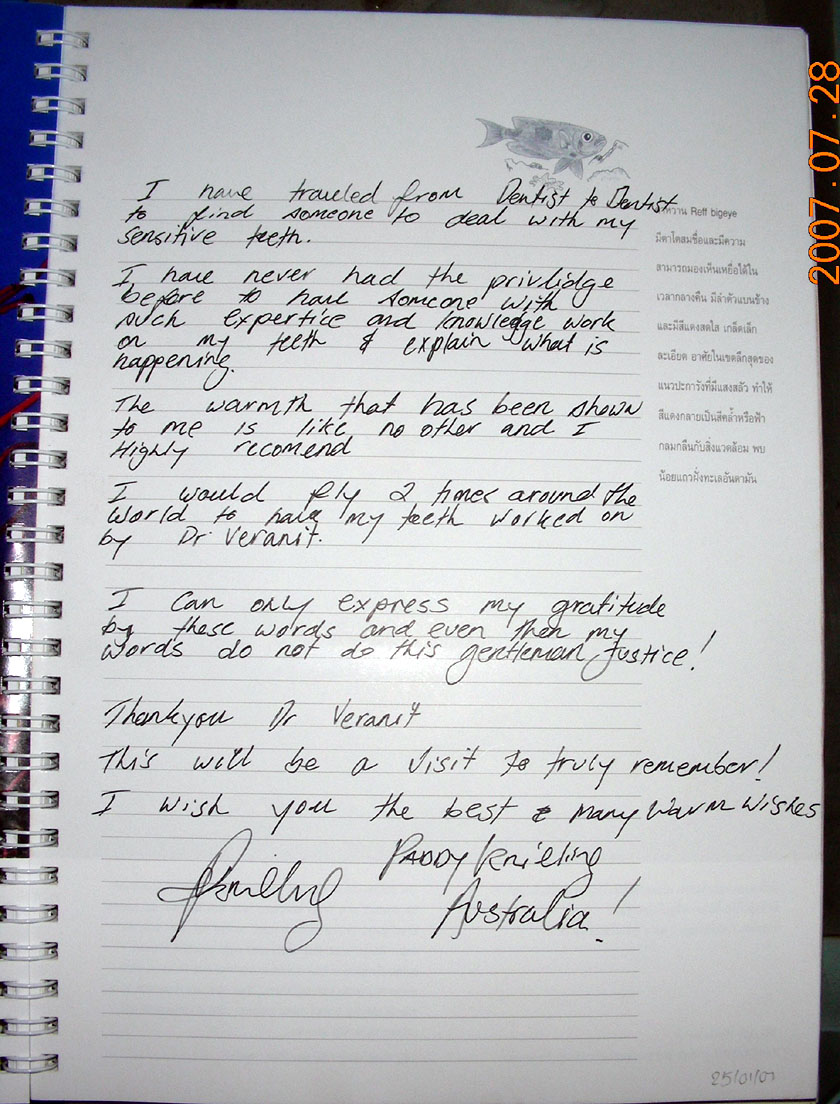 I have travled from Dentist to Dentist
to find someone to deal with my
sensitive teeth.
I have never had the privlidge
before to have someone with
such expertice and knowledge work
on my teeth & explain what is
happening.
The warmth that has been shown
to me is like no other and I
Highly recomend
I would fly 2 times around the
world to have my teeth worked on
by Dr Veranit.
I can only express my gratitude
by these words and even then my
words do not do this gentleman justice!
Thankyou Dr Veranit
This will be a visit to truly remember!
I wish you the best & many warm wishes
PADDY Knilling
Australia!
หวาน Reff bigeye
มีตาโตสมชื่อและมีความ
สามารถมองเห็นเหยื่อได้ใน
เวลากลางคืน มีลำตัวแบนข้าง
และมีสีแดงสดใส เกล็ดเล็ก
ละเอียด อาศัยในเขตลึกสุดของ
แนวปะการังที่มีแสงสลัว ทำให้
สีแดงกลายเป็นสีคล้ำหรือฟ้า
กลมกลืนกับสิ่งแวดล้อม พบ
น้อยแถวฝั่งทะเลอันดามัน
2007.07.28
25/01/07